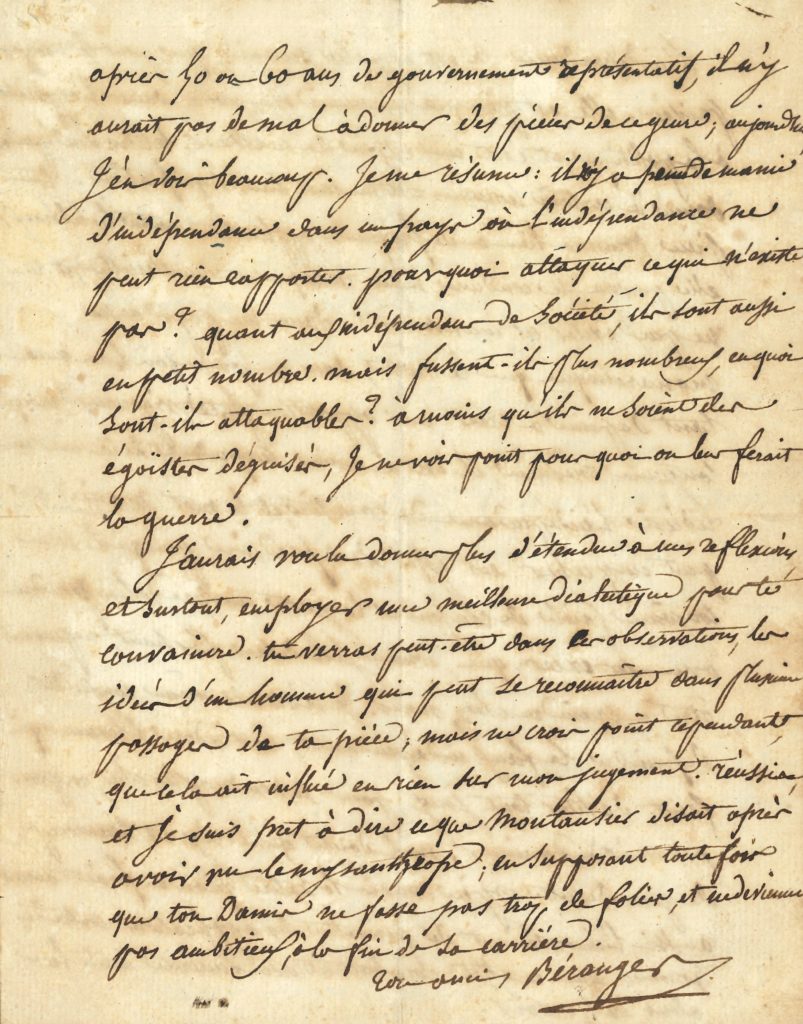 après 50 ou 60 ans de gouvernement représentatif, il n'y
aurait pas de mal à donner des pièces de ce genre; aujourd'hui
J'en vois beaucoup. Je me résume: il n'y a point de manie
d'indépendance dans un pays où l'indépendance ne
peut rien rapporter. pourquoi attaquer ce qui n'existe
pas? quant aux indépendans de Société, ils sont aussi
en petit nombre. mais fussent-ils plus nombreux, en quoi
sont-ils attaquables? à moins qu'ils ne soient des
égoïstes déguisés, Je ne vois point pourquoi on leur ferait
la guerre.
J'aurais voulu donner plus d'étendue à mes reflexions
et surtout, employer une meilleure dialectique pour te
convaincre. tu verras peut-être dans ces observations, les
idées d'un homme qui peut se reconnaître dans plusieurs
passages de ta pièce; mais ne crois point cependant,
que cela ait influé en rien sur mon jugement. réussis,
et Je suis pret à dire ce que Montausier disait après
avoir vu le mysanthrope; en supposant toutefois
que ton Damis ne fasse pas trop de folies, et ne devienne
pas ambitieux, à la fin de sa carrière.
ton ami Béranger